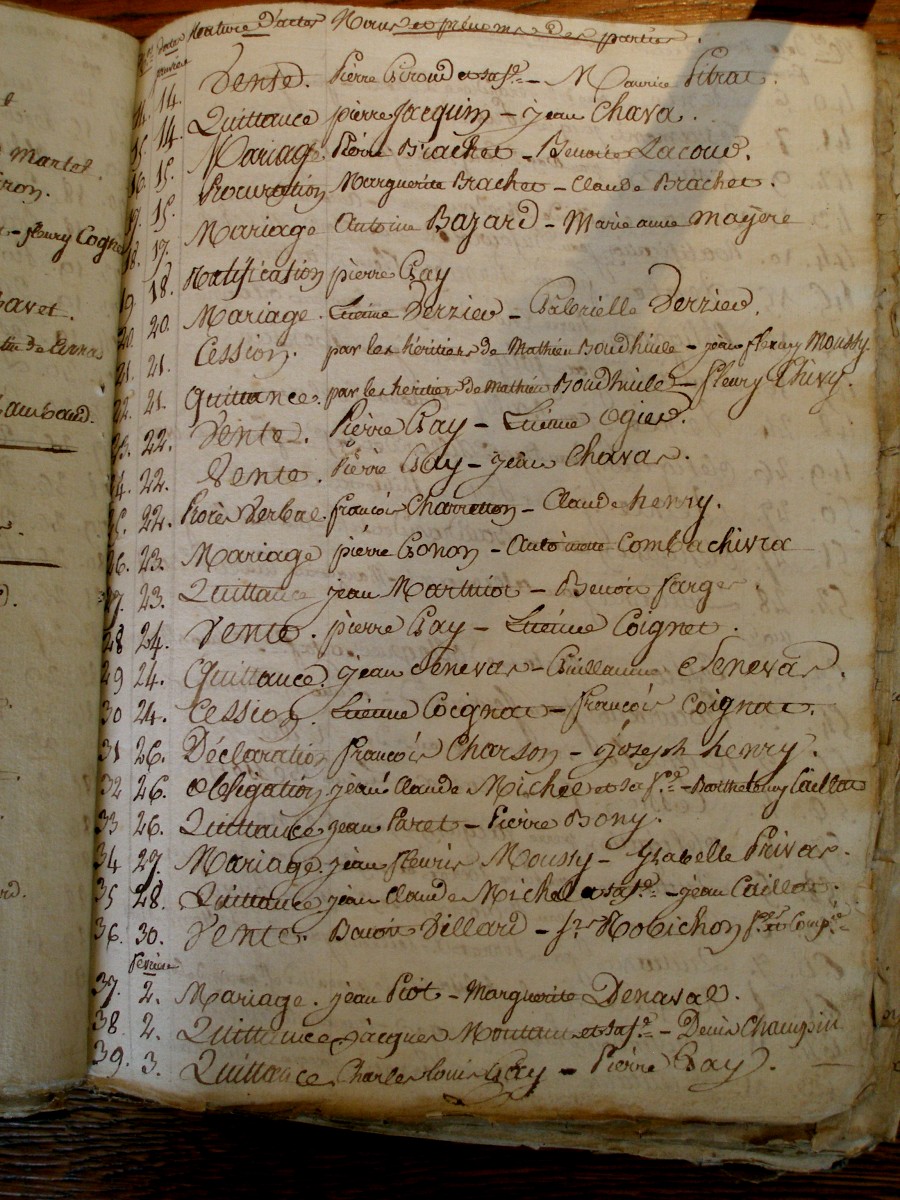 Martel
fleury Cogn
Nos Dates Nature d'actes Noms et prénoms des parties.
janvier
14. 14. Vente. Pierre Giroud et sa fe. - Maurice Pitrat.
15. 14. Quittance pierre Jacquin - jean Chava.
16. 15. Mariage. Pierre Brachet - Benoite Lacour.
17. 15. Procuration Marguerite Brachet - Claude Brachet.
18. 17. Mariage Antoine Bazard - Marie anne Mayere
19. 18. Notification pierre Gay
20. 20. Mariage. Etienne Verrier - Gabrielle Verrier.
21. 21. Cession. par les héritiers de Mathieu Boudhuile - jean fleury Moussy.
22. 21. Quittance. par les héritiers de Mathieu Boudhuile - fleury Thivy.
23. 22. Vente. Pierre Gay - Etienne Ogier.
24. 22. Vente. Pierre Gay - jean Chavas.
25. 22. Procès Verbal. françois Charretton - Claude henry.
26. 23. Mariage pierre Gonon - Antoinette Combachivra
27. 23. Quittance jean Marthiot - Benoit farge.
28 24. Vente. pierre Gay - Etienne Coignet.
29 24. Quittance. jean Senevas - Guillaume Senevas.
30 24. Cession. Etienne Coignat - françois Coignat.
31 26. Déclaration françois Charson - joseph henry.
32 26. Obligation jean Claude Michel et sa fe. - Barthelemy Caillat
33 26. Quittance jean Paret - Pierre Bony.
34 27. Mariage. jean fleuris Moussy - Izabelle Privas.
35 28. Quittance jean Claude Michel et sa fe. - jean Caillat.
36. 30. Vente. Benoit Villard - sr. Robichon fre. et Compe.
fevrier
37. 2. Mariage. jean Piot - Marguerite Denaval.
38. 2. Quittance jacques Montant et sa fe. - Denis Champin
39. 3. Quittance Charles louis Gay - Pierre Gay.